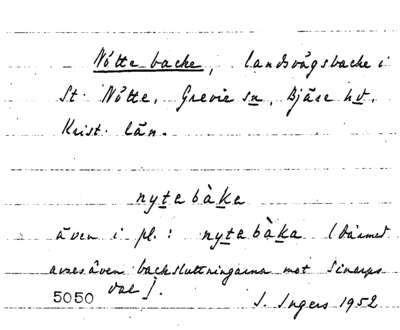 Nötte backe, landsvägsbacke i
St. Nötte, Grevie sn, Bjäre hd,
Krist. län.
nytebàka
även i pl.: nytebàka (därmed
avses även backsluttningarna mot Sinarps
dal).
5050 I. Ingers 1952